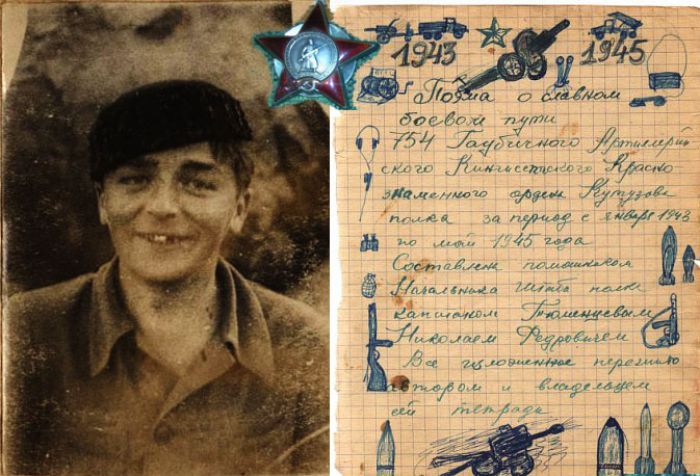 1943 1945
Поэма о славном
боевом пути
754 Гаубичного Артиллерий
ского Кингисепского Красно
знаменного ордена Кутузова
полка за период с января 1943
по май 1945 года
Составлена помошником
Начальника штаба полка
капитаном Тюменцевым
Николаем Федровичем
Все изложенное пережито
автором и владельцем
сей тетради